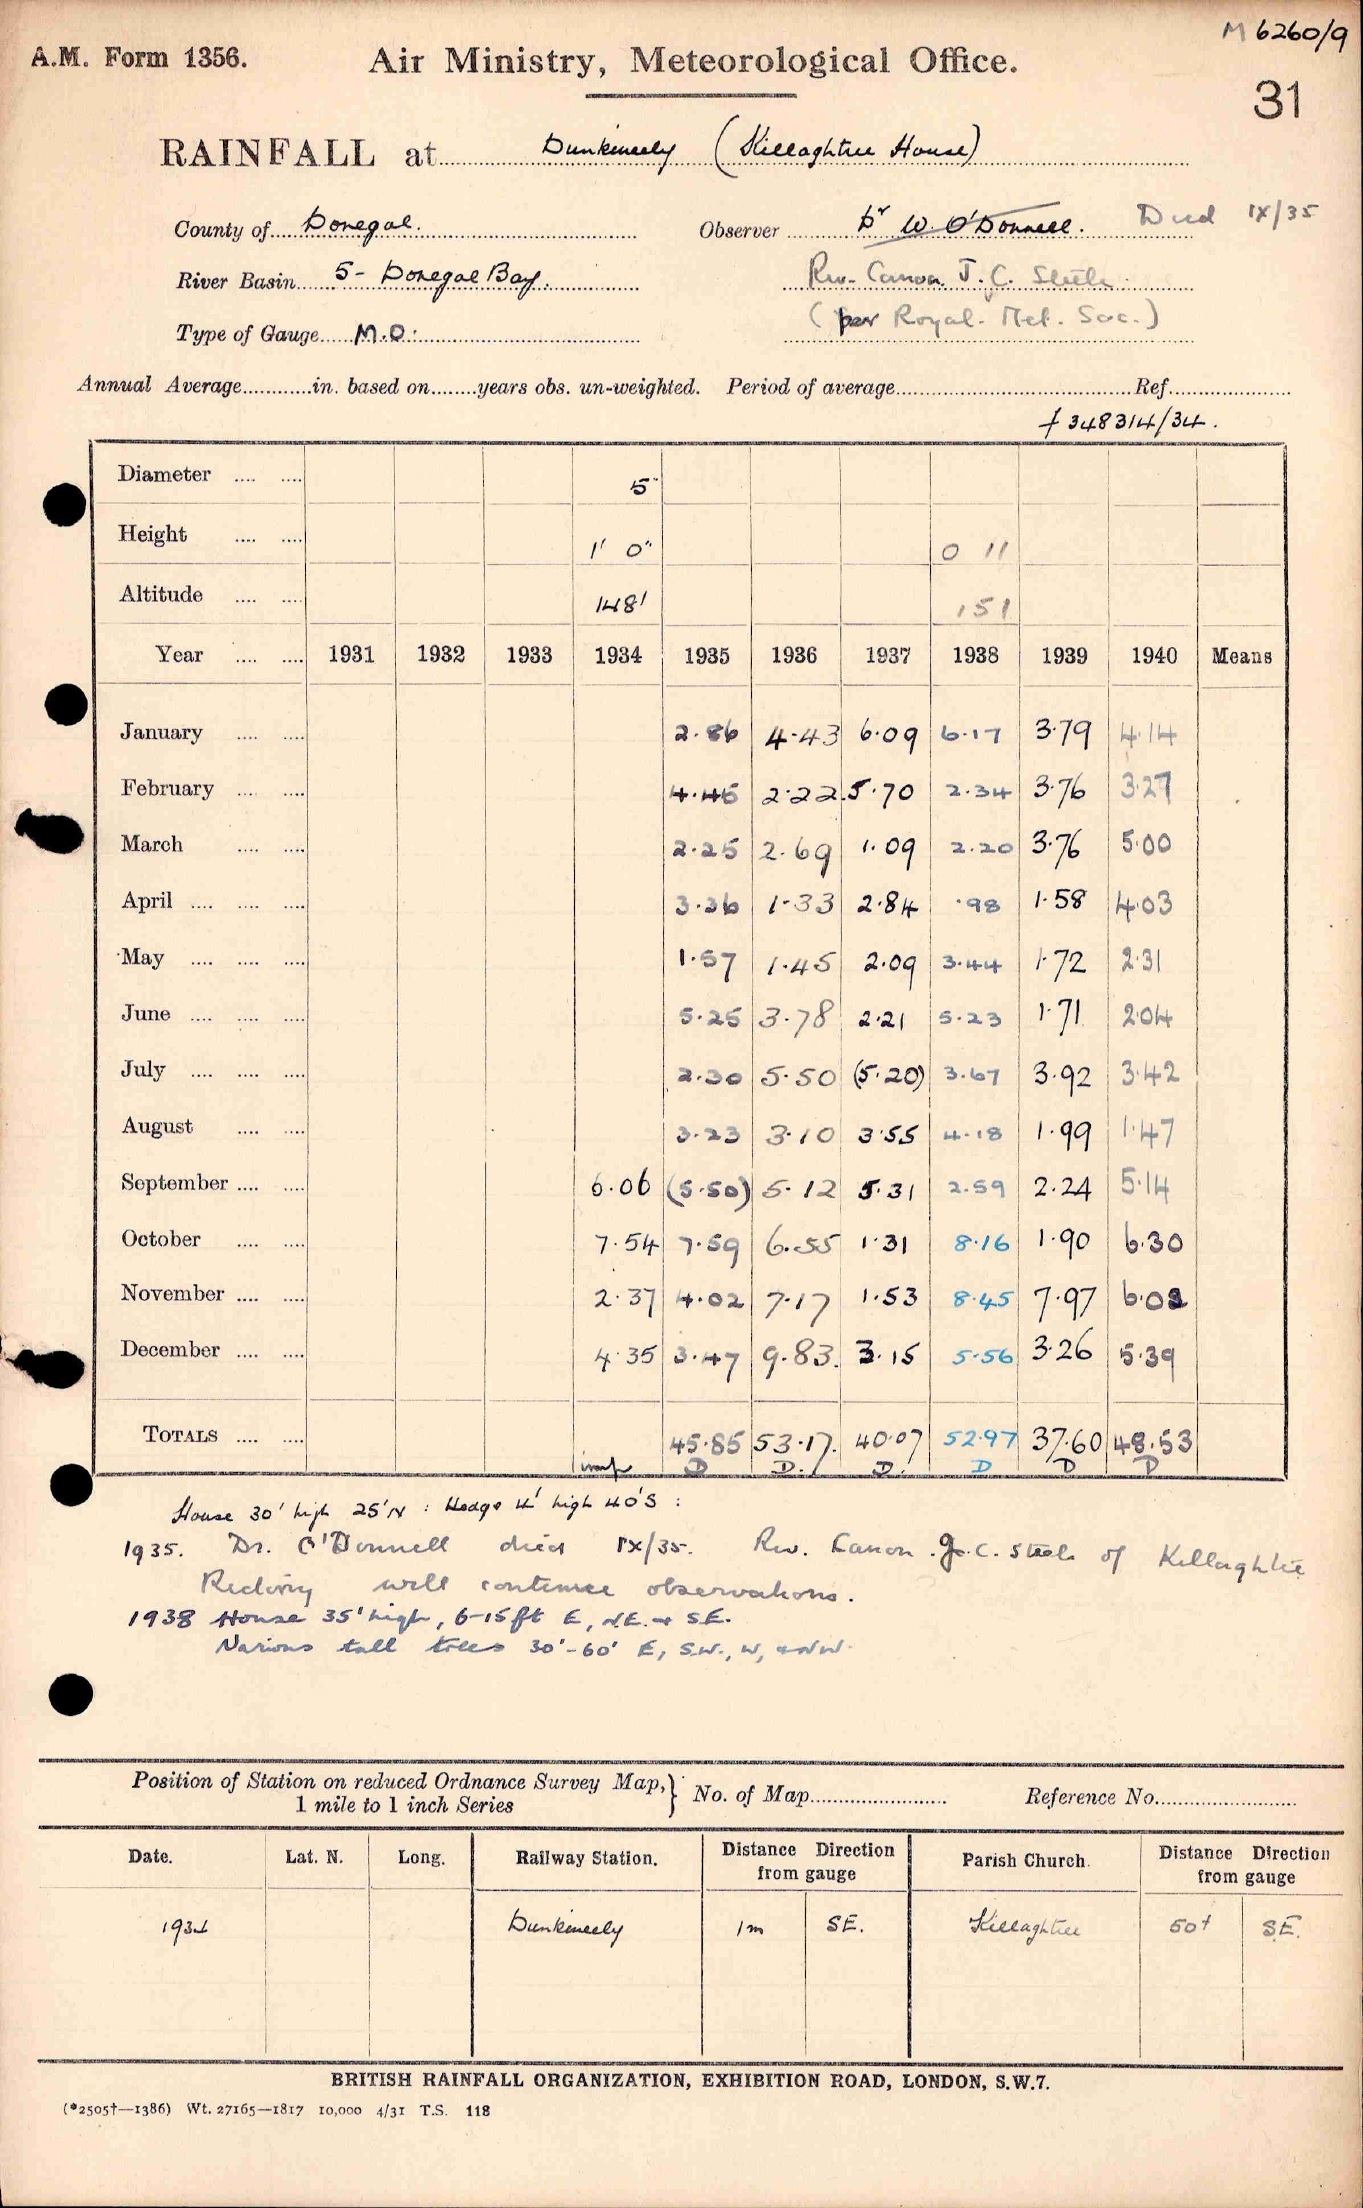 M 6260/9
A.M. Form 1356. Air Ministry, Meteorological Office.
31
RAINFALL at Dunkineely (Killaghtee House)
County of Donegal. Observer Dr W. O'Donnell. Died IX/35
River Basin 5 - Donegal Bay. Rev. Canon J. C. Steele
Type of Gauge M.O. (per Royal. Met. Soc.)
Annual Average in. based on years obs. un-weighted. Period of average Ref.
f 348314/34.
Diameter 5"
Height 1' 0" 0 11
Altitude 148' 151
Year 1931 1932 1933 1934 1935 1936 1937 1938 1939 1940 Means
January 2.86 4.43 6.09 6.17 3.79 4.14
February 4.45 2.22 5.70 2.34 3.76 3.27
March 2.25 2.69 1.09 2.20 3.76 5.00
April 3.36 1.33 2.84 .98 1.58 4.03
May 1.57 1.45 2.09 3.44 1.72 2.31
June 5.25 3.78 2.21 5.23 1.71 2.04
July 2.30 5.50 (5.20) 3.67 3.92 3.42
August 3.23 3.10 3.55 4.18 1.99 1.47
September 6.06 (5.50) 5.12 5.31 2.59 2.24 5.14
October 7.54 7.59 6.55 1.31 8.16 1.90 6.30
November 2.37 4.02 7.17 1.53 8.45 7.97 6.02
December 4.35 3.47 9.83. 3.15 5.56 3.26 5.39
TOTALS 45.85 53.17. 40.07 52.97 37.60 48.53
D D. D. D D D
House 30' high 25'N : Hedge 4' high 40'S :
1935. Dr. O'Donnell died IX/35. Rev. Canon J.C. Steele of Killaghtee
Rectory will continue observations.
1938 House 35' high, 6-15ft E, N.E. & S.E.
Various tall trees 30'-60' E, S.W., W, & NW.
Position of Station on reduced Ordnance Survey Map, } No. of Map Reference No.
1 mile to 1 inch Series
Date. Lat. N. Long. Railway Station. Distance Direction from gauge Parish Church. Distance Direction from gauge
1934 Dunkineely 1m SE. Killaghtee S.E.
BRITISH RAINFALL ORGANIZATION, EXHIBITION ROAD, LONDON, S.W.7.
(*2505†—1386) Wt. 27165—1817 10,000 4/31 T.S. 118